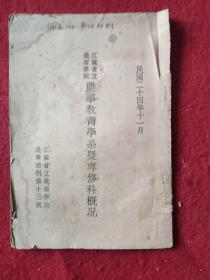 民國二十四年十一月
江蘇省立
教育學院
農事教育學系暨專修科概況
江蘇省立教育學院
農事週刊第十三號